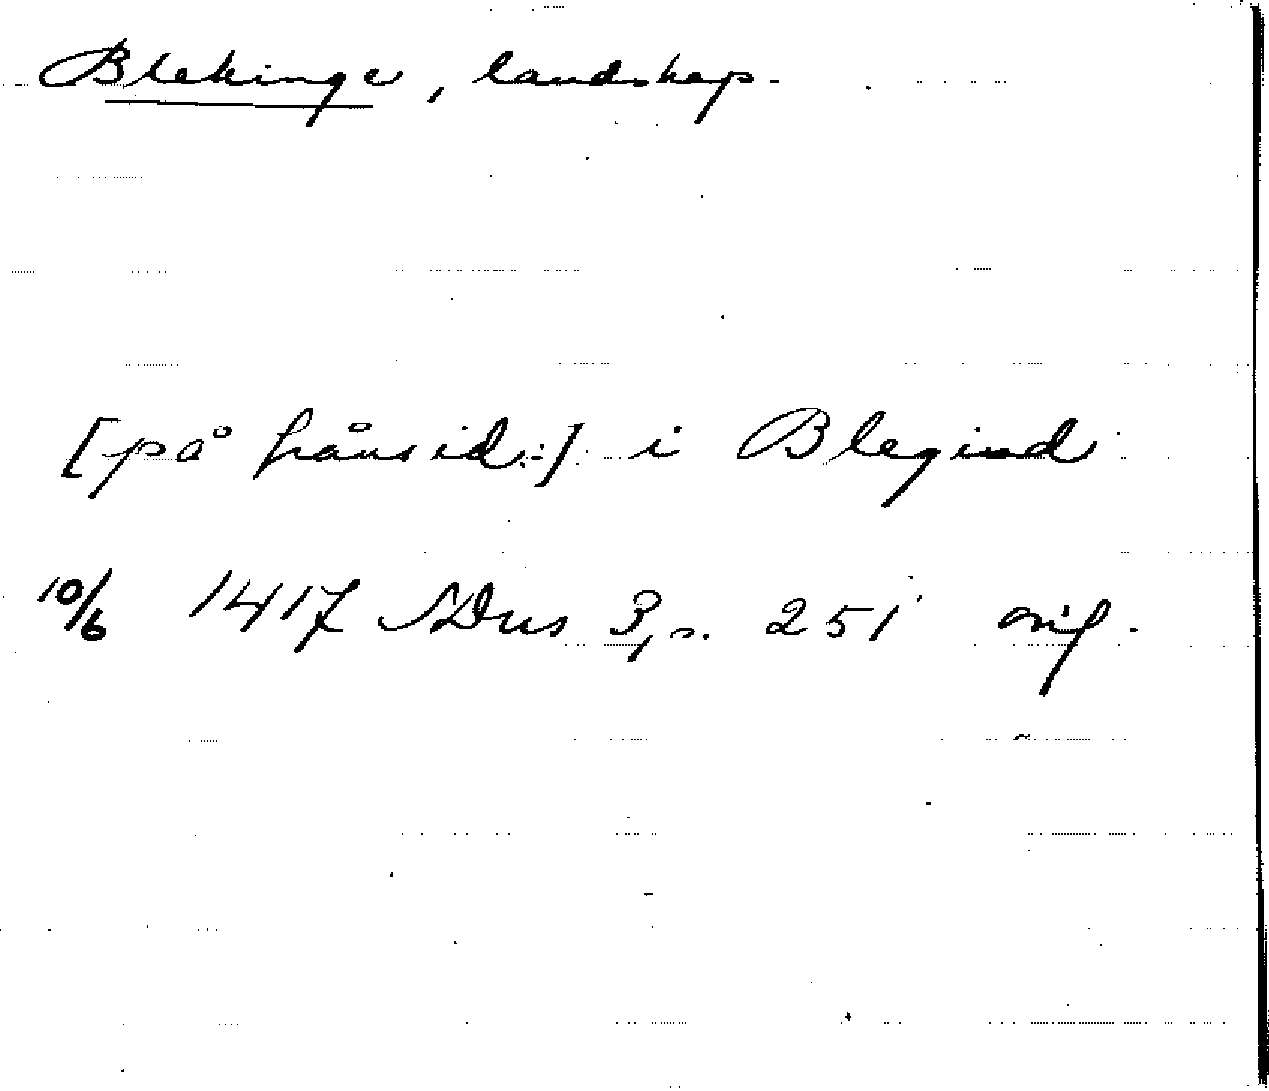 Blekinge, landskap.
[på frånsid:] i Blegind
10/6 1417 SDns 3, s. 251 orig.